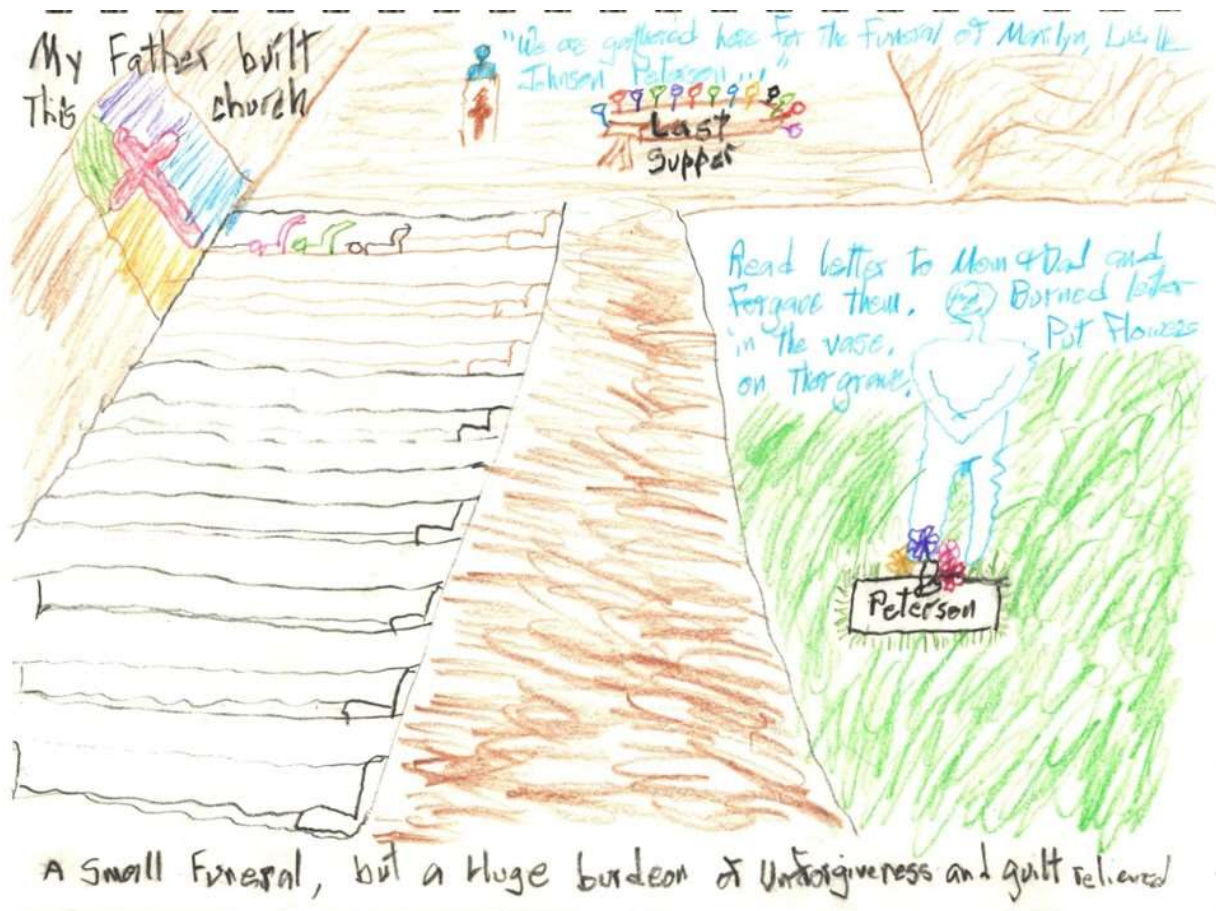 My Father built
This church
"We are gathered here for the Funeral of Marilyn, Lucille
Johnson Peterson..."
Last
Supper
Read letter to Mom & Dad and
Forgave them. Burned letter
in the vase. Put Flowers
on Thor grave.
Peterson
A Small Funeral, but a Huge burdeon of Unforgiveness and guilt relieved